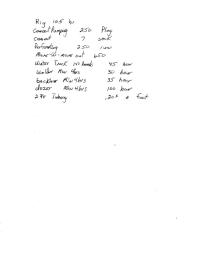 Rig 105 hr
Cement Pumping 250 Plug
Cement 7 sack
Perforating 250 run
Move-in-move out 650
Water Truck 45 hour
Welder Min 4hrs 50 hour
backhoe Min 4hrs 35 hour
dozer Min 4hrs 100 hour
2 7/8 Tubing .20¢ Foot